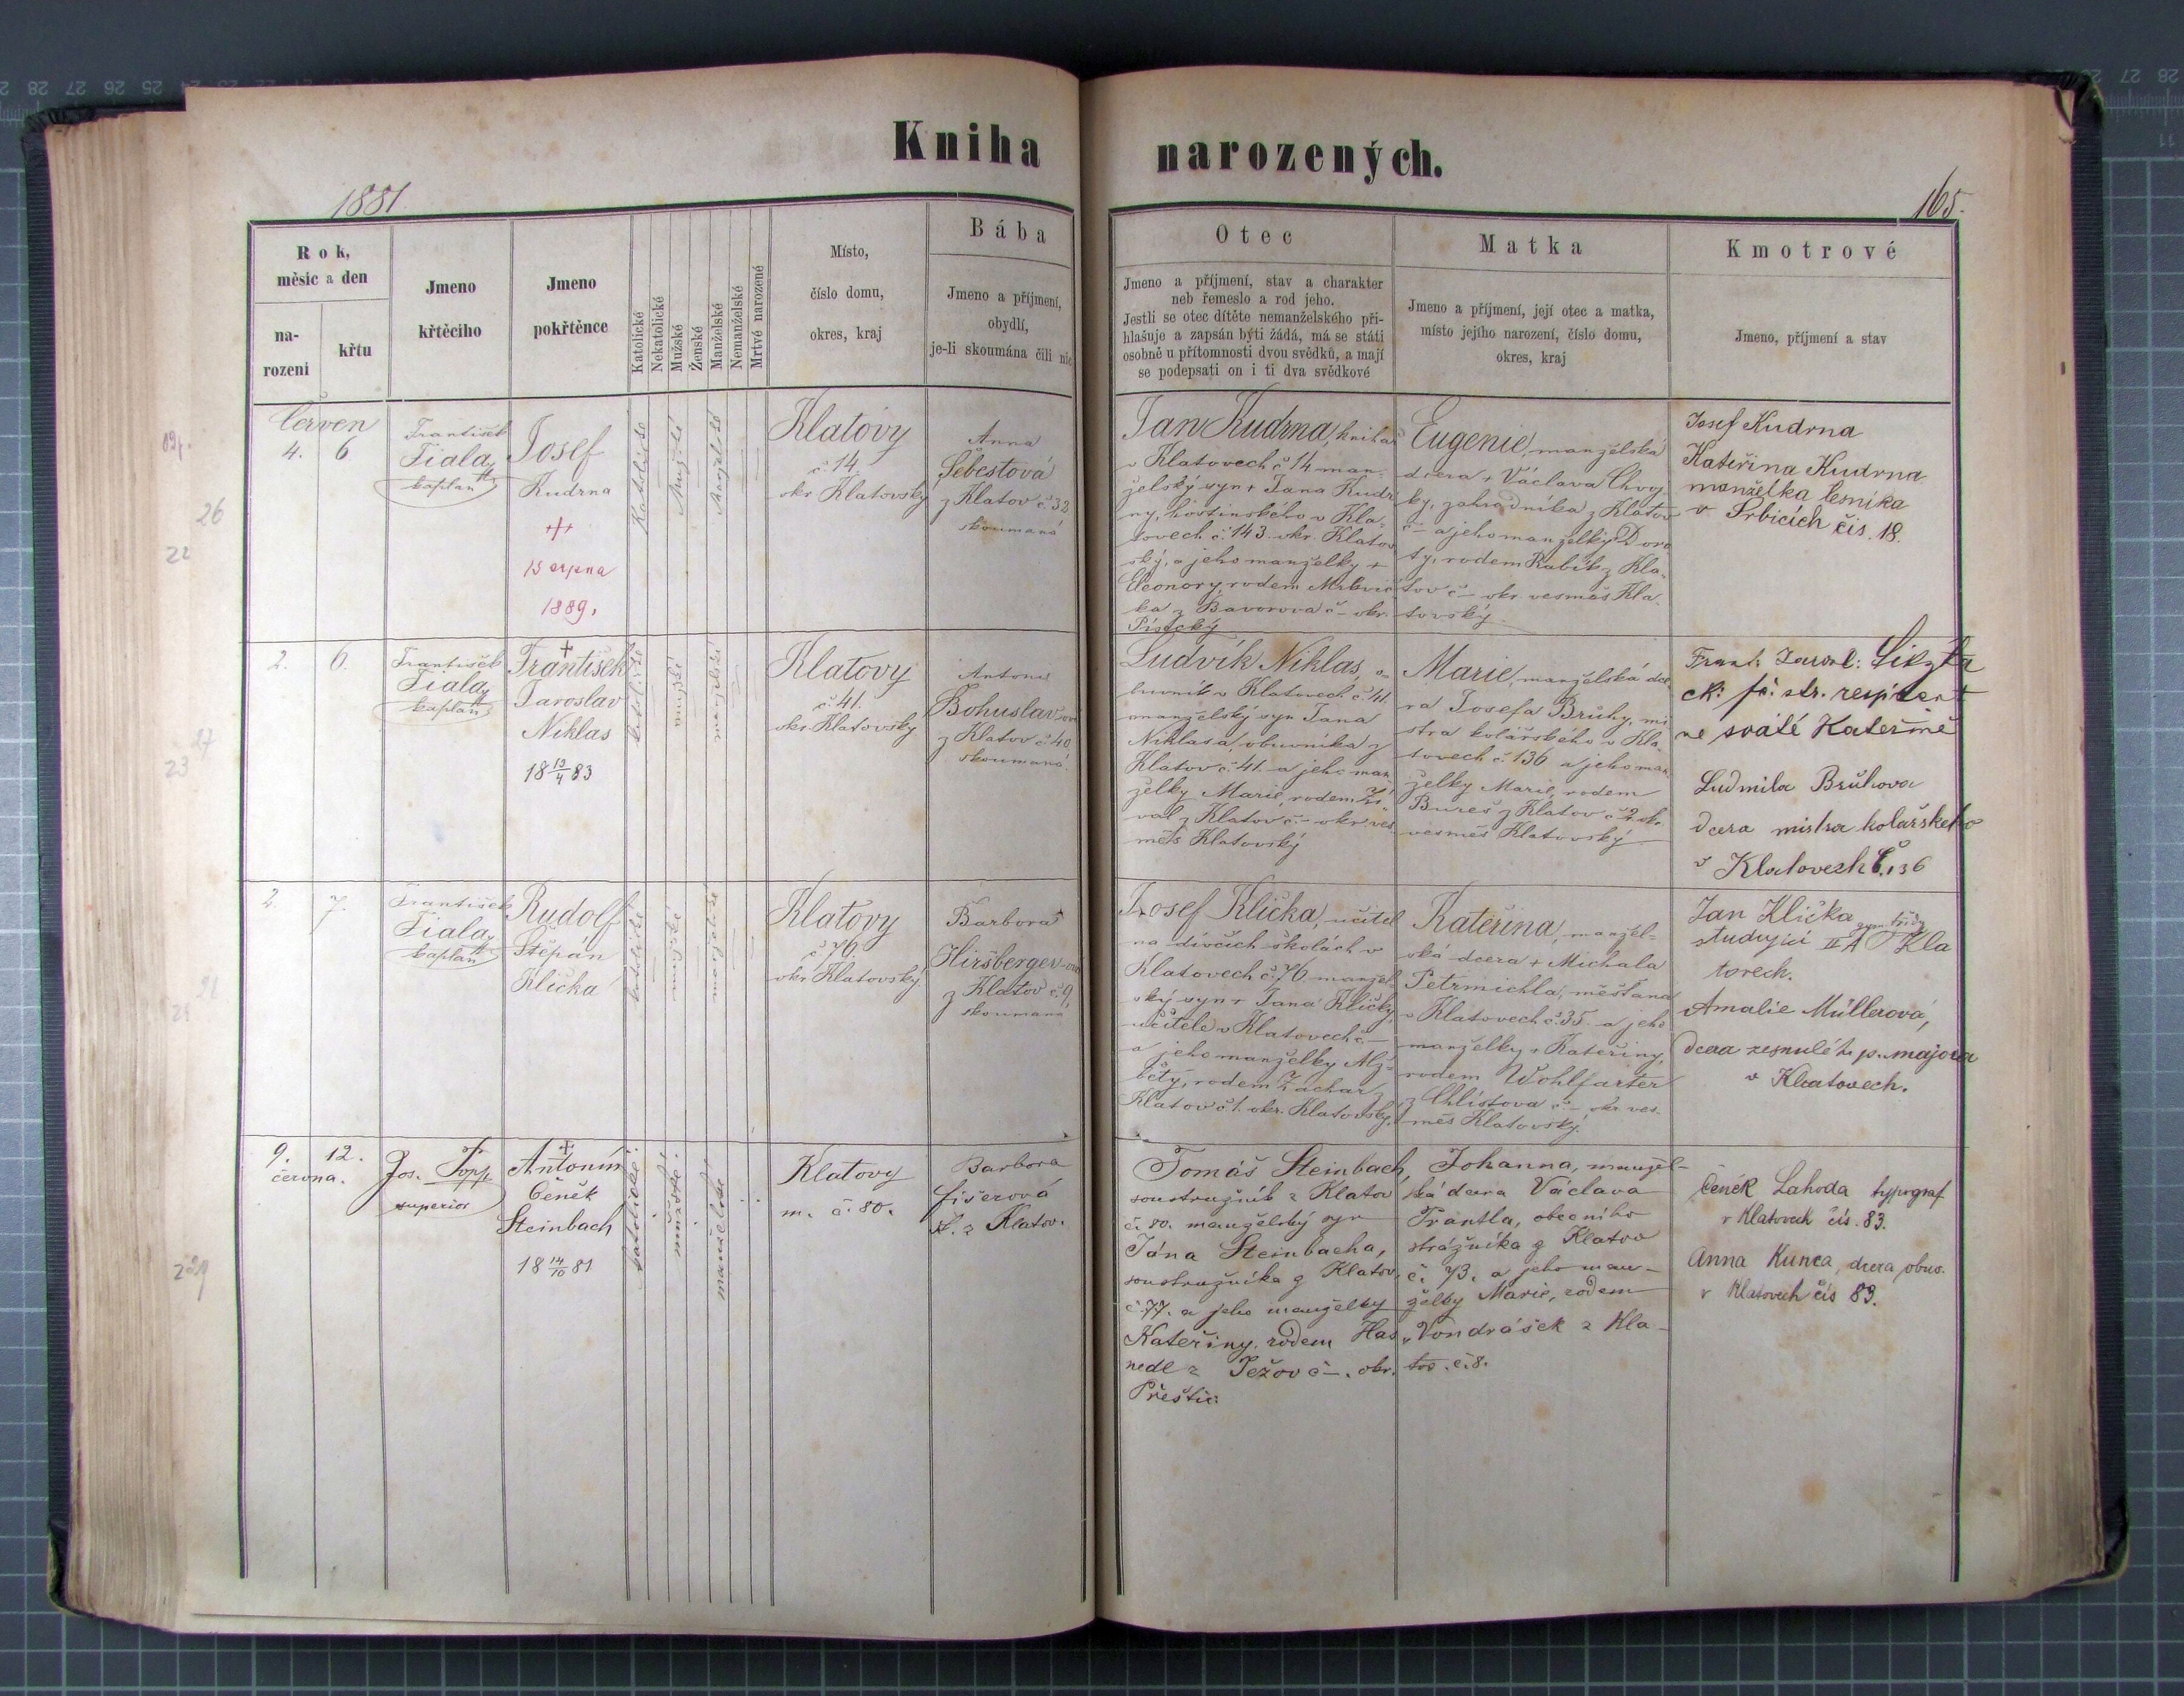 Kniha narozených.
1881.
165.
Rok,
měsíc a den
na-
rozeni
křtu
Jmeno
křtěcího
Jmeno
pokřtěnce
Katolické
Nekatolické
Mužské
Ženské
Manželské
Nemanželské
Mrtvé narozené
Místo,
číslo domu,
okres, kraj
Bába
Jmeno a příjmení,
obydlí,
je-li skoumána čili nic
Otec
Jmeno a příjmení, stav a charakter
neb řemeslo a rod jeho.
Jestli se otec dítěte nemanželského při-
hlašuje a zapsán býti žádá, má se státi
osobně u přítomnosti dvou svědků, a mají
se podepsati on i ti dva svědkové
Matka
Jmeno a příjmení, její otec a matka,
místo jejího narození, číslo domu,
okres, kraj
Kmotrové
Jmeno, příjmení a stav
Červen
4. 6
František
Fiala,
kaplan
Josef
Kudrna
+++
15 srpna
1889.
Katolické
Mužské
Manželské
Klatovy
č 14.
okr Klatovský
Anna
Šebestová
z Klatov č 32
skoumaná
Jan Kudrna, knihař
v Klatovech č 14 man-
želský syn + Jana Kudr
ny, hostinského v Kla-
tovech č. 143. okr. Klatov
ský, a jeho manželky +
Eleonory, rodem Mrkvič
ka z Bavorova č – okr.
Písecký
Eugenie, manželská
dcera + Václava Chvoj
ky, zahradníka z Klatov
č – a jeho manželky Doro
ty, rodem Rabík z Kla-
tov č – okr. vesměs Kla-
tovský.
Josef Kudrna
Kateřina Kudrna
manželka lesníka
v Srbicích čis. 18.
2. 6.
František
Fiala,
kaplan
+
František
Jaroslav
Niklas
18 13/4 83
katolické
mužské
manželské
Klatovy
č. 41.
okr. Klatovský
Antonie
Bohuslavová
z Klatov č. 40,
skoumaná.
Ludvík Niklas, o-
buvník v Klatovech č. 41.
manželský syn Jana
Niklasa, obuvníka z
Klatov č. 41. a jeho man-
želky Marie, rodem Ží
val z Klatov č. – okr. ves-
měs Klatovský
Marie, manželská dce
ra Josefa Brůhy, mi
stra kolářského v Kla-
tovech č. 136 a jeho man-
želky Marie, rodem
Bureš z Klatov č 2. okr.
vesměs Klatovský
Frant. Jarosl:
ck: fi: str. respicent
ve svaté Kateřině
Ludmila Brůhova
dcera mistra kolařského
v Klatovech č. 136
2. 7.
František
Fiala,
kaplan
Rudolf
Štěpán
Klička
katolické
mužské
manželské
Klatovy
č 76.
okr Klatovský
Barbora
Hiršbergerová
z Klatov č. 9,
skoumaná
Josef Klička, učitel
na dívčích školách v
Klatovech č. 76 manžel-
ský syn + Jana Kličky,
učitele v Klatovech č. –
a jeho manželky Alž-
běty, rodem Zachar z
Klatov č 1. okr. Klatovský.
Kateřina, manžel-
ská dcera + Michala
Petrmichla, měšťana
v Klatovech č. 35. a jeho
manželky + Kateřiny,
rodem Wohlfarter
z Chlistova č – okr ves-
měs Klatovský.
Jan Klička
studující II A gym. třídy Kla
tovech.
Amalie Müllerová,
dcera zesnulého p. majora
v Klatovech.
9. 12.
června.
Jos. Popp
superior
+
Antonín
Čeněk
Steinbach
18 14/10 81
katolické
mužské
manželské
Klatovy
m. č. 80.
Barbora
Fišerová
z Klatov.
Tomáš Steinbach,
soustružník z Klatov
č. 80. manželský syn
Jána Steinbacha,
soustružníka z Klatov,
č. 77. a jeho manželky
Kateřiny, rodem Has
nedl z Ježov č –. okr.
Přeštic.
Johanna, manžel-
ská dcera Václava
Frantla, obecního
strážníka z Klatov
č. 73. a jeho man-
želky Marie, rodem
Vondrášek z Kla-
tov. č. 8.
Čeněk Lahoda typograf
v Klatovech čís. 83.
Anna Kunca, dcera obuv.
v Klatovech čís 83.
26
22
27
23
29